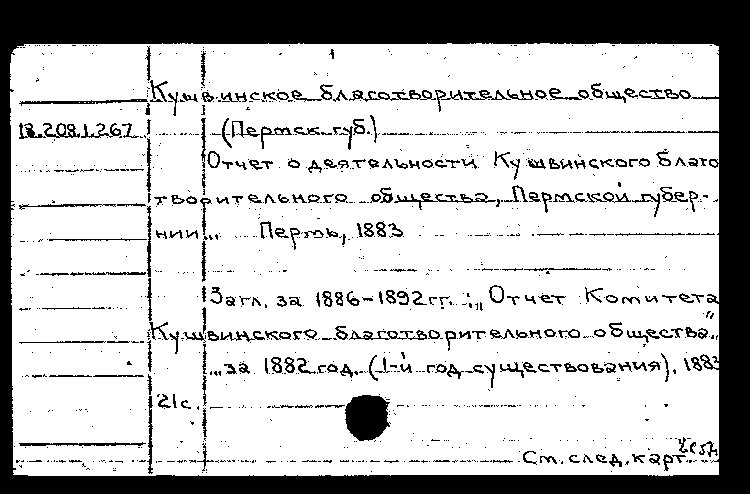 Кушвинское благотворительное общество
18.208.1.267
(Пермск. губ.)
Отчет о деятельности Кушвинского благо
творительного общества, Пермской губер-
нии... Пермь, 1883
Загл. за 1886-1892 гг. : „Отчет Комитета
Кушвинского благотворительного общества..."
...за 1882 год. (1-й год существования). 1883
21с.
См. след. карт.